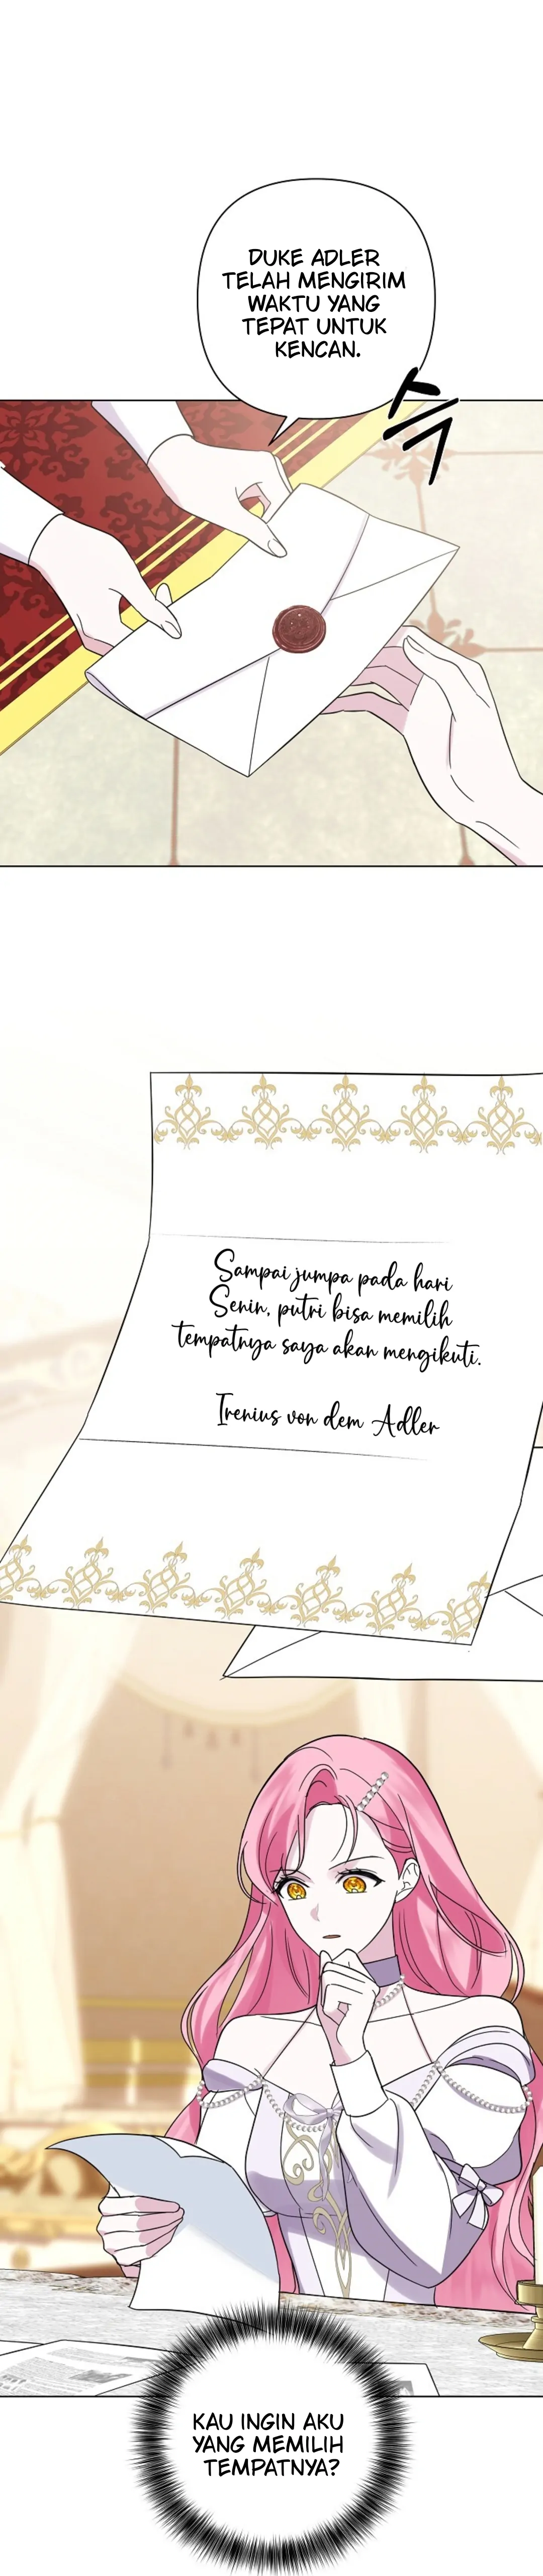 DUKE ADLER
TELAH MENGIRIM
WAKTU YANG
TEPAT UNTUK
KENCAN.
Sampai jumpa pada hari
Senin, putri bisa memilih
tempatnya saya akan mengikuti.
Irenius von dem Adler
KAU INGIN AKU
YANG MEMILIH
TEMPATNYA?